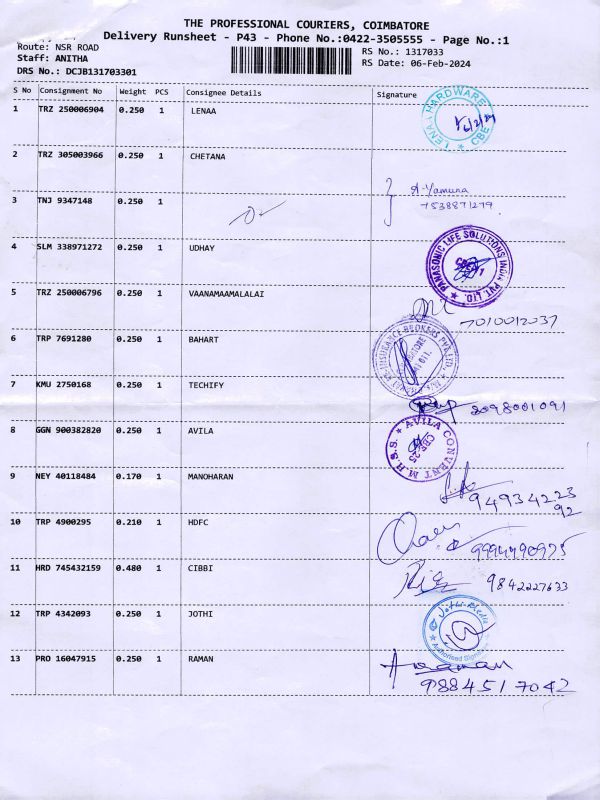 THE PROFESSIONAL COURIERS, COIMBATORE
Delivery Runsheet - P43 - Phone No.:0422-3505555 - Page No.:1
Route: NSR ROAD
RS No.: 1317033
Staff: ANITHA
RS Date: 06-Feb-2024
DRS No.: DCJB131703301
S No Consignment No Weight PCS Consignee Details Signature
1 TRZ 250006904 0.250 1 LENAA
LENAA HARDWARE CBE
2 TRZ 305003966 0.250 1 CHETANA
A-Yamuna
3 TNJ 9347148 0.250 1
7538871279
4 SLM 338971272 0.250 1 UDHAY
PANASONIC LIFE SOLUTIONS INDIA PVT. LTD.
5 TRZ 250006796 0.250 1 VAANAMAAMALALAI
7010012037
6 TRP 7691280 0.250 1 BAHART
INSURANCE BROKERS PVT. LTD.
7 KMU 2750168 0.250 1 TECHIFY
8098001091
8 GGN 900382820 0.250 1 AVILA
AVILA CONVENT M.H.S.S.
CBE-25
9 NEY 40118484 0.170 1 MANOHARAN
9493422392
10 TRP 4900295 0.210 1 HDFC
9994490975
11 HRD 745432159 0.480 1 CIBBI
9842227633
12 TRP 4342093 0.250 1 JOTHI
Jothi Media
Authorised Signatory
13 PRO 16047915 0.250 1 RAMAN
9884517042